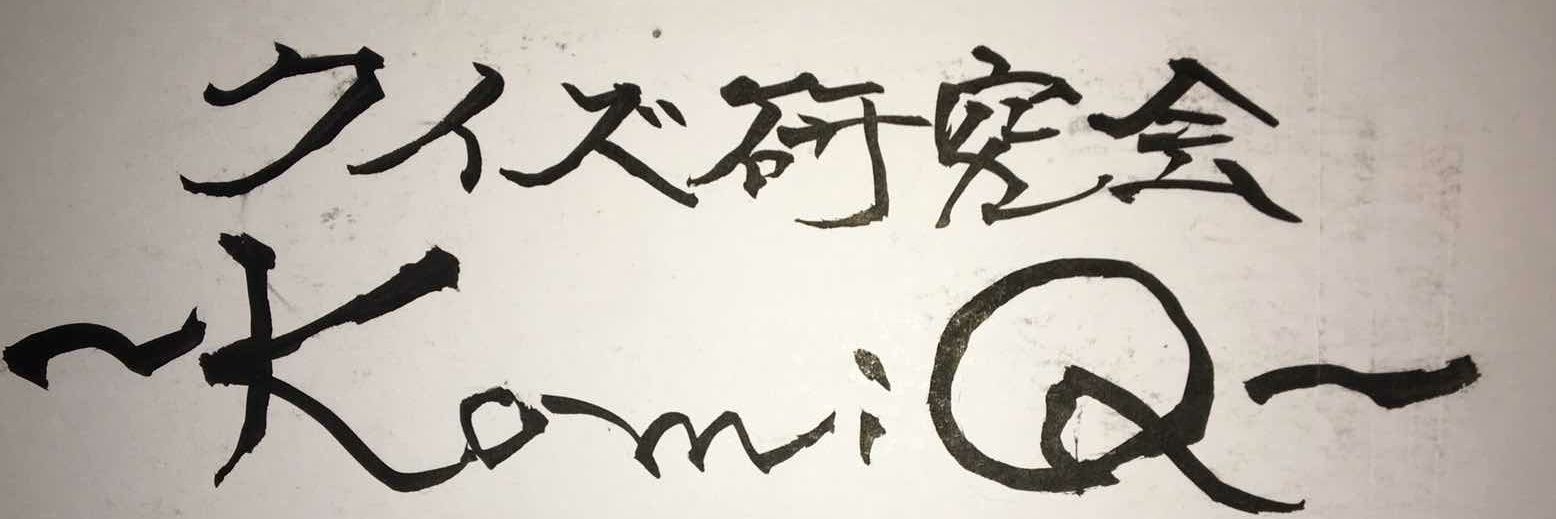 クイズ研究会
~KomiQ~